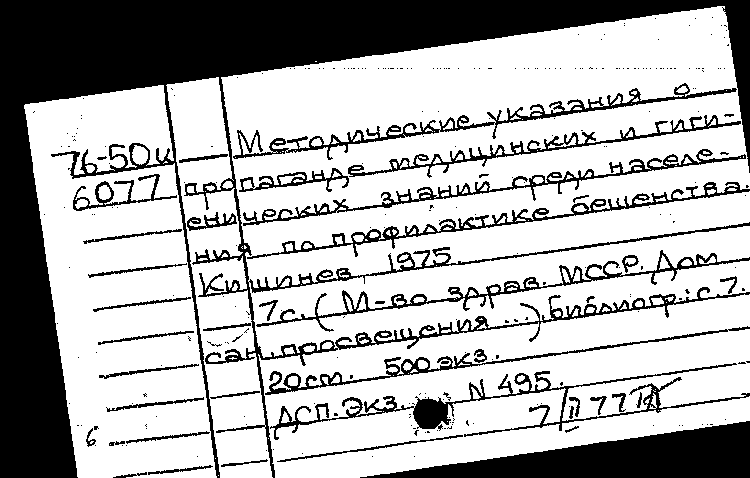 Методические указания о
76-50и
6077 пропаганде медицинских и гиги-
енических знаний среди населе-
ния по профилактике бешенства.
Кишинев, 1975.
7с. (М-во здрав. МССР. Дом
сан. просвещения ...). Библиогр.: с.7.
20см. 500 экз.
ДСП. Экз. N 495.
7/II 77
6